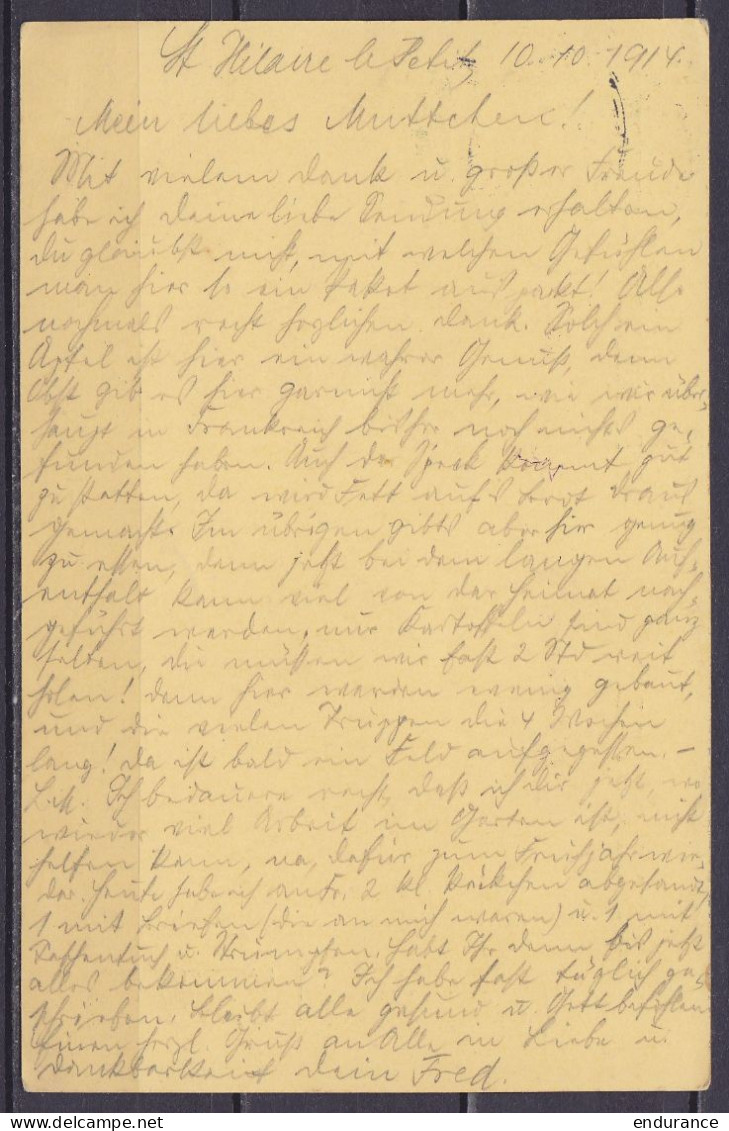 St Hilaire le Petit, 10.10.1914.
Mein liebes Muttchen!
Mit vielem Dank u. großer Freude
habe ich Deine liebe Sendung erhalten,
Du glaubst nicht, mit welchen Gefühlen
man hier so ein Paket auspakt! Also
nochmals recht herzlichen Dank. Solch ein
Apfel ist hier ein wahrer Genuß, denn
Obst gib es hier garnicht mehr, wie wir über-
haupt in Frankreich bisher noch nichts ge-
funden haben. Auch der Speck kommt gut
zu statten, da wird Fett aufs Brot draus
gemacht. Im übrigen gibts aber hier genug
zu essen, denn jetzt bei dem langen Auf-
enthalt kann viel von der Heimat nach-
geführt werden, nur Kartoffeln sind ganz
selten, die müssen wir fast 2 Std weit
holen! denn hier werden wenig gebaut,
und die vielen Truppen die 4 Wochen
lang! da ist bald ein Feld aufgegessen. –
L.M. Ich bedauere recht, daß ich Dir jetzt, wo
wieder viel Arbeit im Garten ist, nicht
helfen kann, na, dafür zum Frühjahr wie-
der. Heute habe ich an Fr. 2 kl. Päckchen abgesandt,
1 mit Briefen (die an mich waren) u. 1 mit
Taschentuch u. Strümpfen. Habt Ihr denn bis jetzt
alles bekommen? Ich habe fast täglich ge-
schrieben. Bleibt alle gesund u. Gott befohlen
Einen herzl. Gruß an Alle in Liebe u.
Dankbarkeit Dein Fred.
endurance